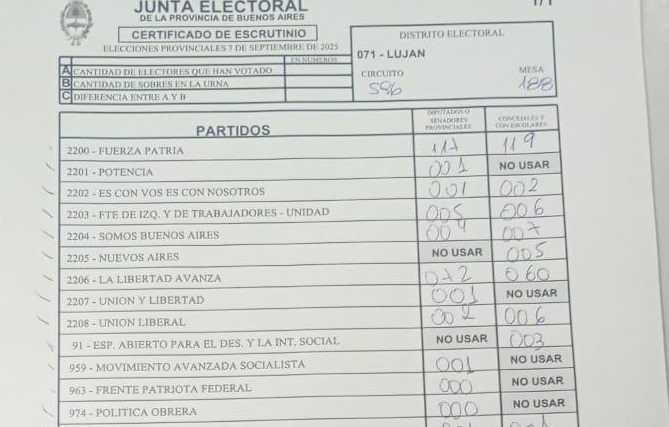 JUNTA ELECTORAL
DE LA PROVINCIA DE BUENOS AIRES
CERTIFICADO DE ESCRUTINIO
ELECCIONES PROVINCIALES 7 DE SEPTIEMBRE DE 2025
1/1
DISTRITO ELECTORAL
071 - LUJAN
CIRCUITO MESA
596 188
EN NUMEROS
A CANTIDAD DE ELECTORES QUE HAN VOTADO
B CANTIDAD DE SOBRES EN LA URNA
C DIFERENCIA ENTRE A Y B
PARTIDOS DIPUTADOS O SENADORES PROVINCIALES CONCEJALES Y CON ESCOLARES
2200 - FUERZA PATRIA 117 119
2201 - POTENCIA 001 NO USAR
2202 - ES CON VOS ES CON NOSOTROS 001 002
2203 - FTE DE IZQ. Y DE TRABAJADORES - UNIDAD 005 006
2204 - SOMOS BUENOS AIRES 004 007
2205 - NUEVOS AIRES NO USAR 005
2206 - LA LIBERTAD AVANZA 072 060
2207 - UNION Y LIBERTAD 001 NO USAR
2208 - UNION LIBERAL 002 006
91 - ESP. ABIERTO PARA EL DES. Y LA INT. SOCIAL NO USAR 003
959 - MOVIMIENTO AVANZADA SOCIALISTA 001 NO USAR
963 - FRENTE PATRIOTA FEDERAL 000 NO USAR
974 - POLITICA OBRERA 000 NO USAR